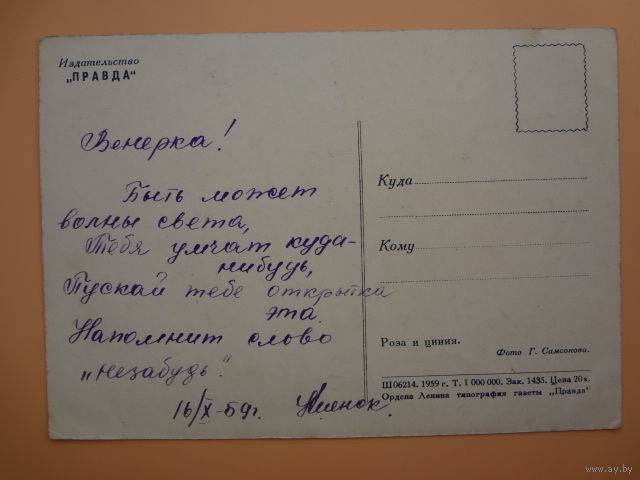 Издательство
„ПРАВДА“
Венерка!
Быть может
волны света,
Тебя умчат куда-
нибудь,
Пускай тебе открытка
эта.
Напомнит слово
„незабудь“.
16/X-59г.
Куда
Кому
Роза и циния.
Фото Г. Самсонова.
Ш06214. 1959 г. Т. 1 000 000. Зак. 1435. Цена 20 к.
Ордена Ленина типография газеты „Правда“
www.ay.by